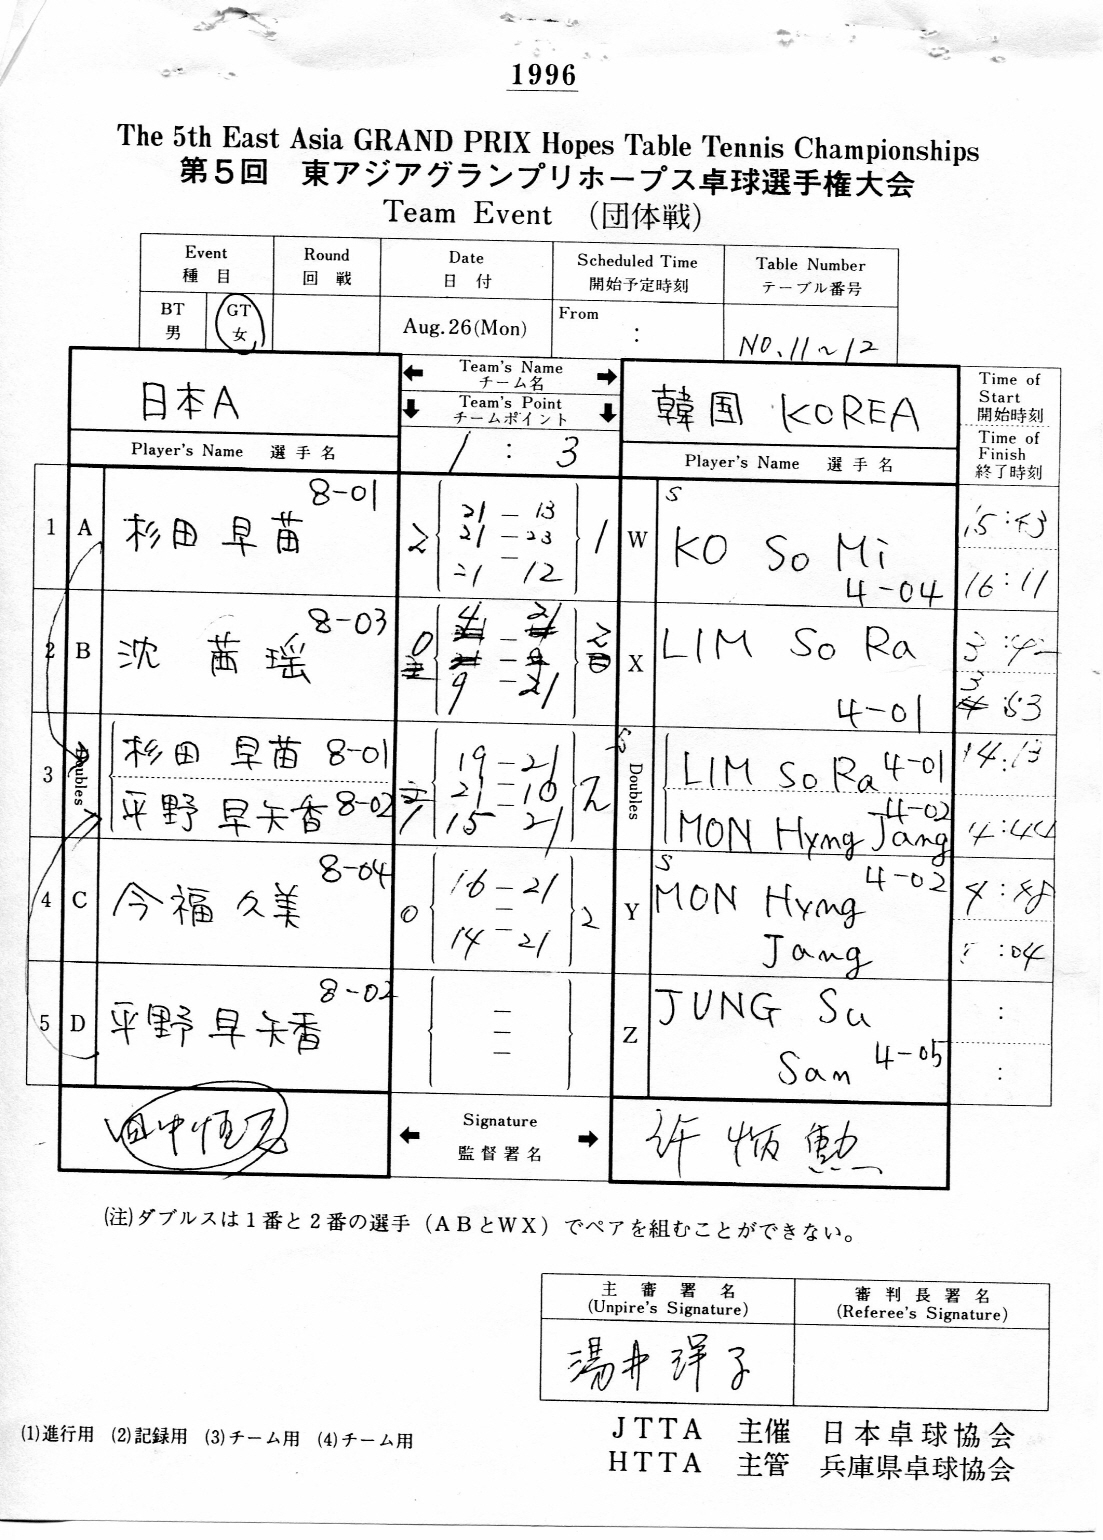 1996
The 5th East Asia GRAND PRIX Hopes Table Tennis Championships
第5回 東アジアグランプリホープス卓球選手権大会
Team Event （団体戦）
Event 種目
Round 回戦
Date 日付
Scheduled Time 開始予定時刻
Table Number テーブル番号
BT 男
GT 女
Aug. 26(Mon)
From :
NO. 11～12
日本A
Team's Name チーム名
Team's Point チームポイント
1 : 3
韓国 KOREA
Time of Start 開始時刻
Time of Finish 終了時刻
Player's Name 選手名
Player's Name 選手名
1 A 杉田 早苗 8-01
2
21 - 13
21 - 23
21 - 12
1
W S KO So Mi 4-04
15:43
16:11
2 B 沈 茜瑶 8-03
0
4 - 21
9 - 21
2
X LIM So Ra 4-01
3:42
3:53
3 Doubles
杉田 早苗 8-01
平野 早矢香 8-02
1
19 - 21
21 - 10
15 - 21
2
Doubles
LIM So Ra 4-01
MON Hyng Jang 4-02
14:13
4:44
4 C 今福 久美 8-04
0
16 - 21
-
14 - 21
2
Y S MON Hyng Jang 4-02
4:48
:04
5 D 平野 早矢香 8-02
-
-
-
Z JUNG Su San 4-05
:
:
Signature 監督署名
(注)ダブルスは1番と2番の選手（ABとWX）でペアを組むことができない。
主審署名 (Unpire's Signature)
審判長署名 (Referee's Signature)
湯井 洋子
(1)進行用 (2)記録用 (3)チーム用 (4)チーム用
JTTA 主催 日本卓球協会
HTTA 主管 兵庫県卓球協会